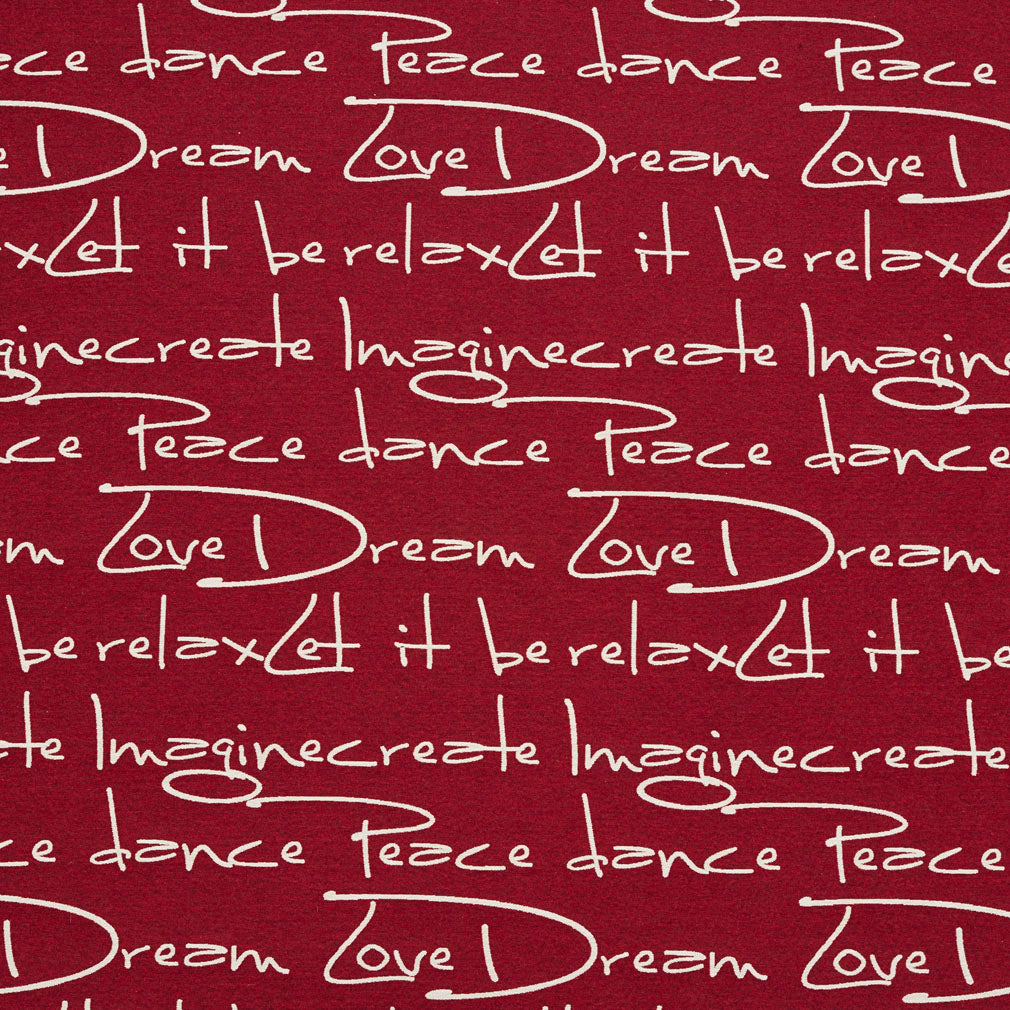 ace dance Peace dance Peace
e Dream Love Dream Love
x Let it be relax Let it be relax Le
gine create Imagine create Imagine
ce Peace dance Peace dance
m Love Dream Love Dream
be relax Let it be relax Let it be
te Imagine create Imagine create
ce dance Peace dance Peace
Dream Love Dream Love